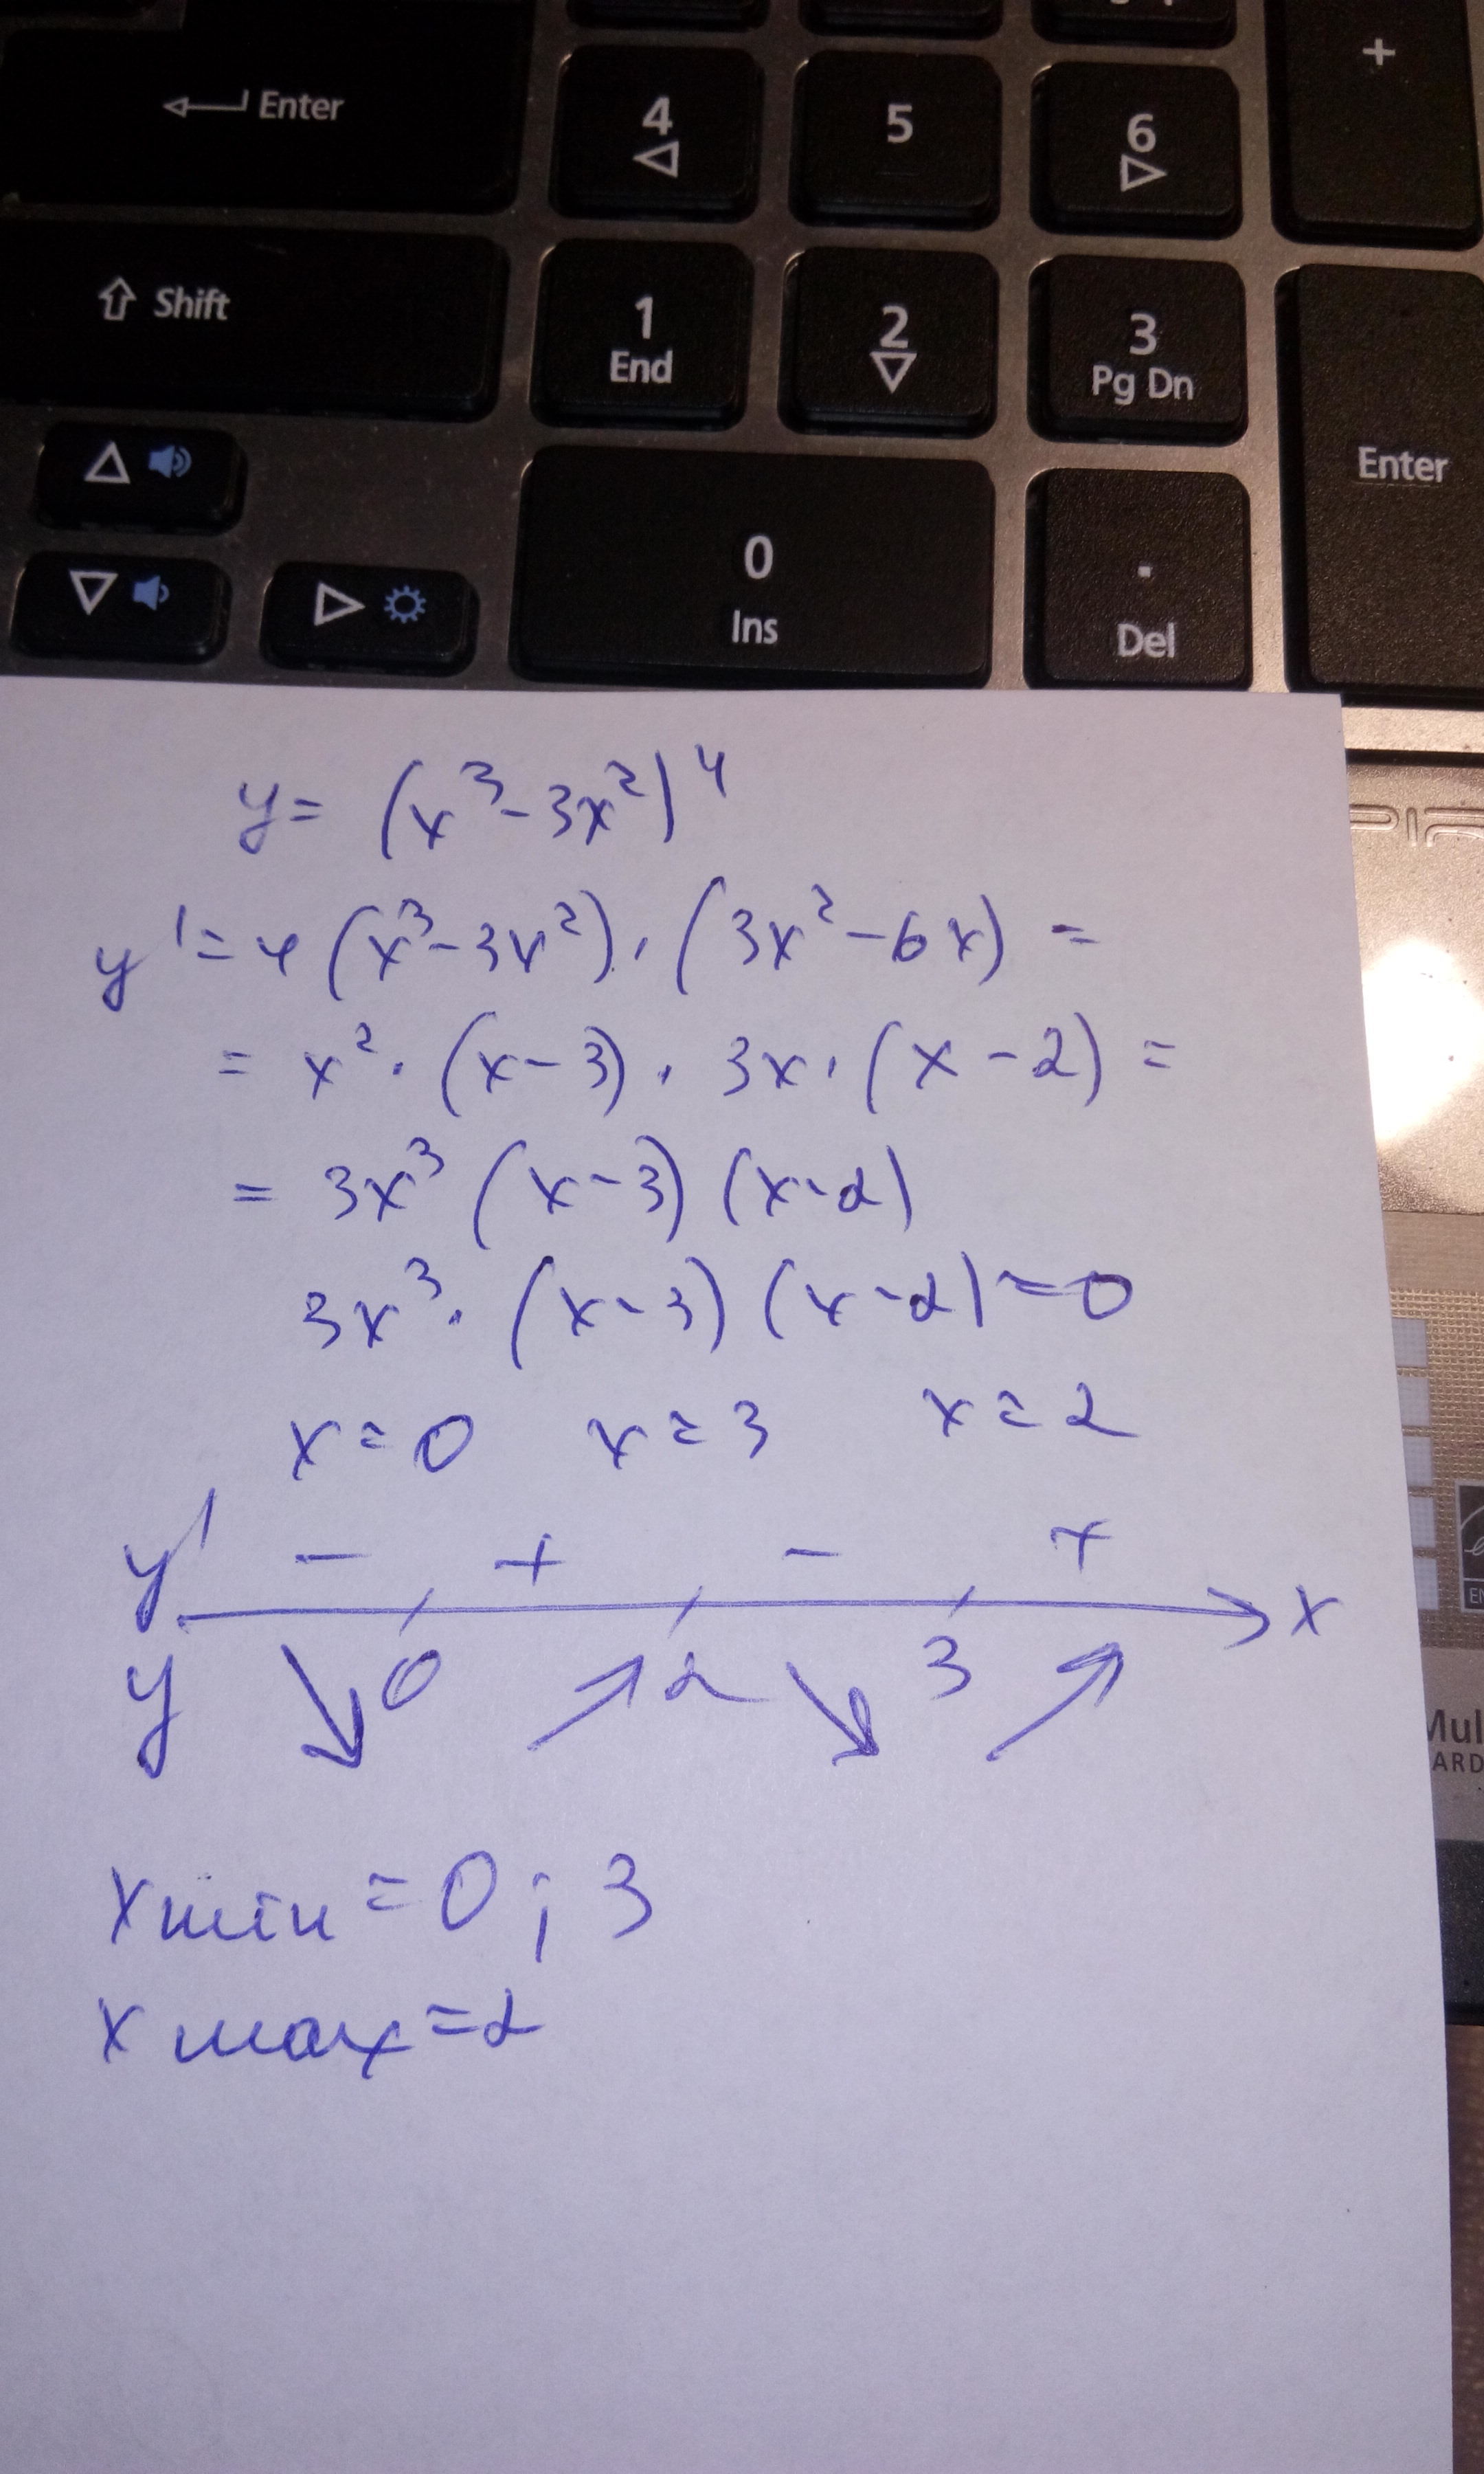 +
Enter
4
5
6
Shift
1
End
2
3
Pg Dn
Enter
0
Ins
.
Del
y = (x³ - 3x²)⁴
y' = 4(x³ - 3x²) · (3x² - 6x) =
= x² · (x - 3) · 3x · (x - 2) =
= 3x³ (x - 3) (x - 2)
3x³ · (x - 3) (x - 2) = 0
x = 0 x = 3 x = 2
y' - + - +
x
y 0 2 3
x min = 0 ; 3
x max = 2